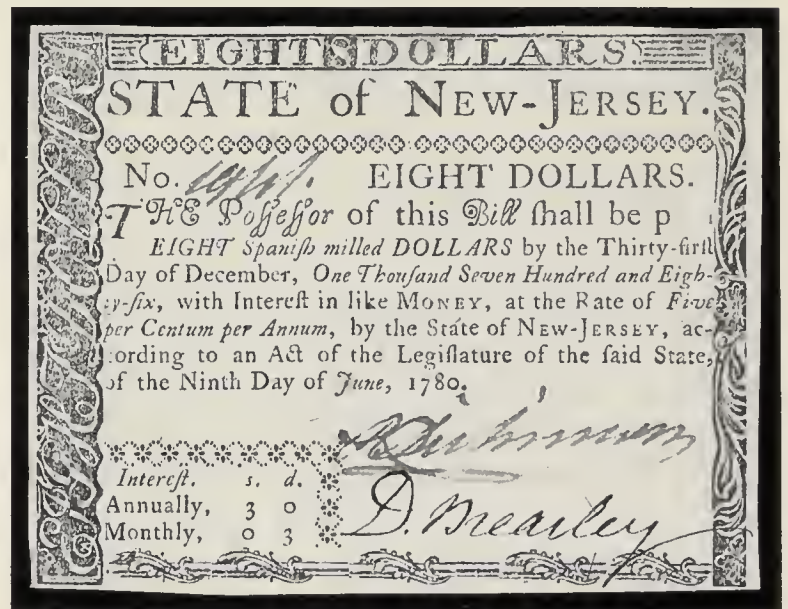 EIGHT DOLLARS.
STATE of NEW-JERSEY.
No. EIGHT DOLLARS.
THE Poſſeſſor of this Bill ſhall be p
EIGHT Spaniſh milled DOLLARS by the Thirty-firſt
Day of December, One Thouſand Seven Hundred and Eigh-
ty-ſix, with Intereſt in like MONEY, at the Rate of Five
per Centum per Annum, by the State of NEW-JERSEY, ac-
cording to an Act of the Legiſlature of the ſaid State,
of the Ninth Day of June, 1780.
Intereſt. s. d.
Annually, 3 0
Monthly, 0 3
D. Brearley